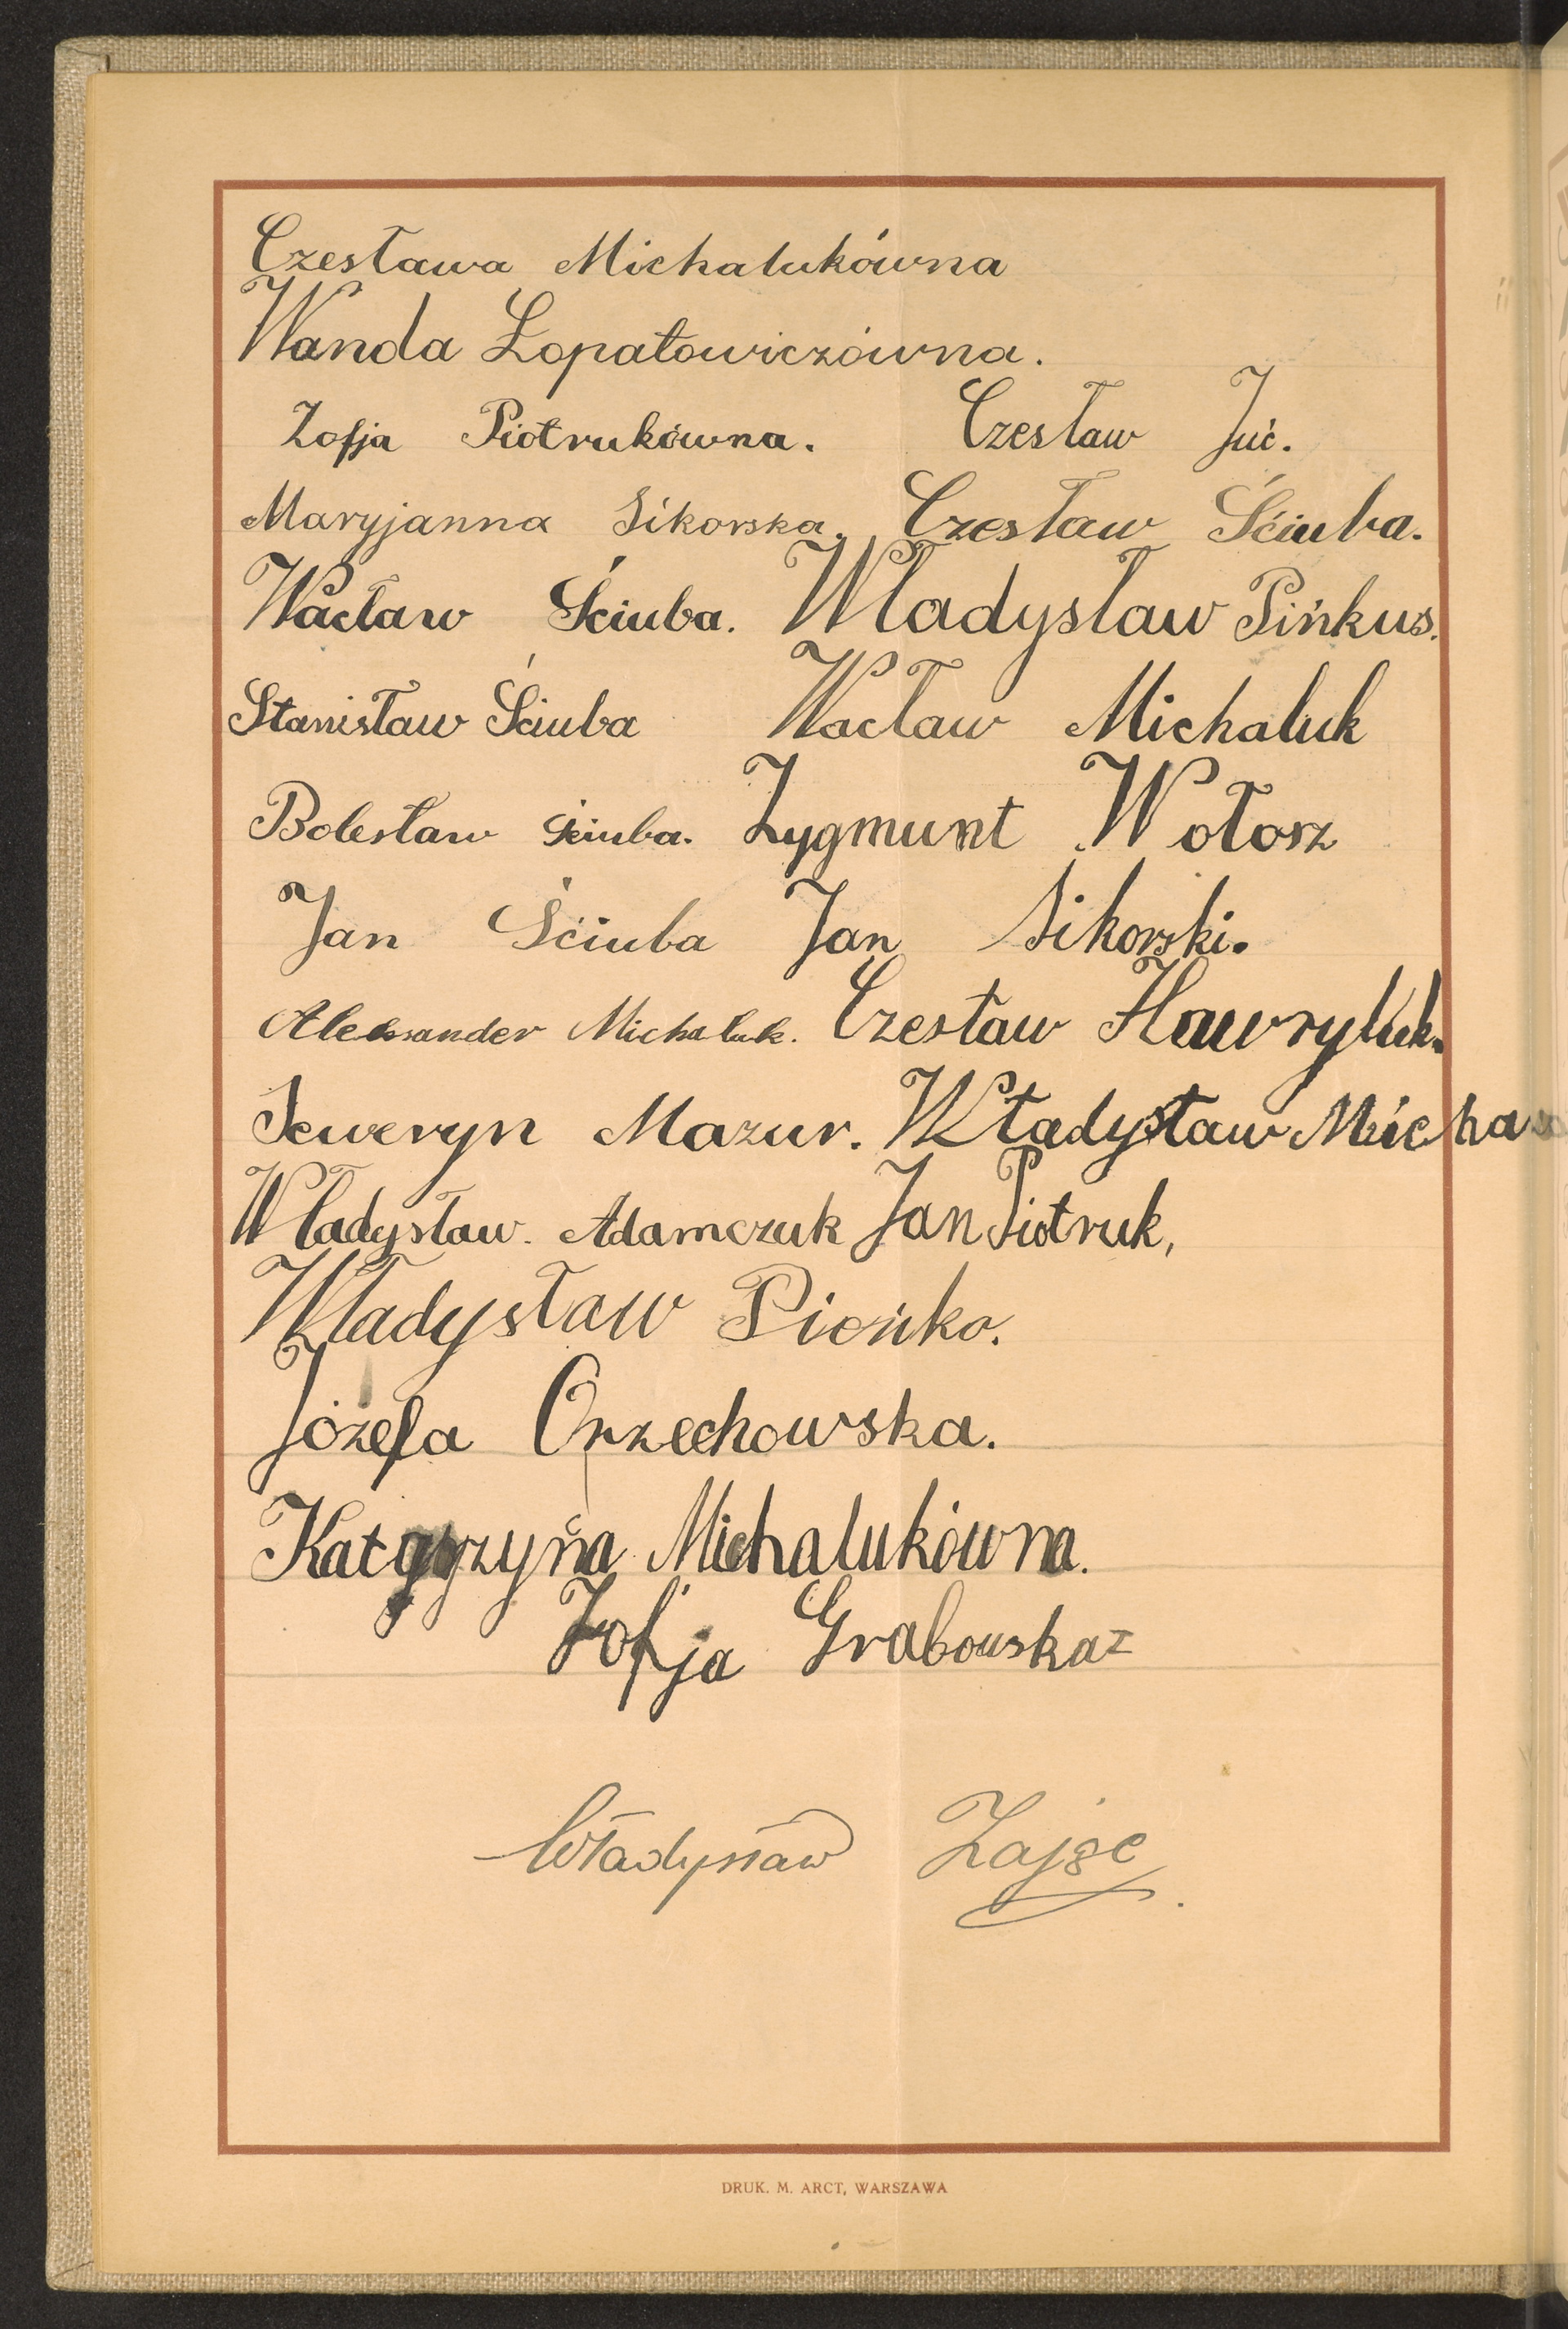 Czesława Michalukówna
Wanda Łopatowiczówna.
Zofja Piotrukówna. Czesław Juć.
Maryjanna Sikorska. Czesław Śćiuba.
Wacław Ściuba. Władysław Pińkus.
Stanisław Śćiuba Wacław Michaluk
Bolesław Sciuba. Zygmunt Wołosz
Jan Śćiuba Jan Sikorski.
Aleksander Michaluk. Czesław Hawryluk.
Seweryn Mazur. Władysław Micha
Władysław. Adamczuk Jan Piotruk,
Władysław Pieńko.
Józefa Orzechowska.
Katarzyna Michalukówna.
Zofja Grabowska
Władysław Zając.
DRUK. M. ARCT, WARSZAWA